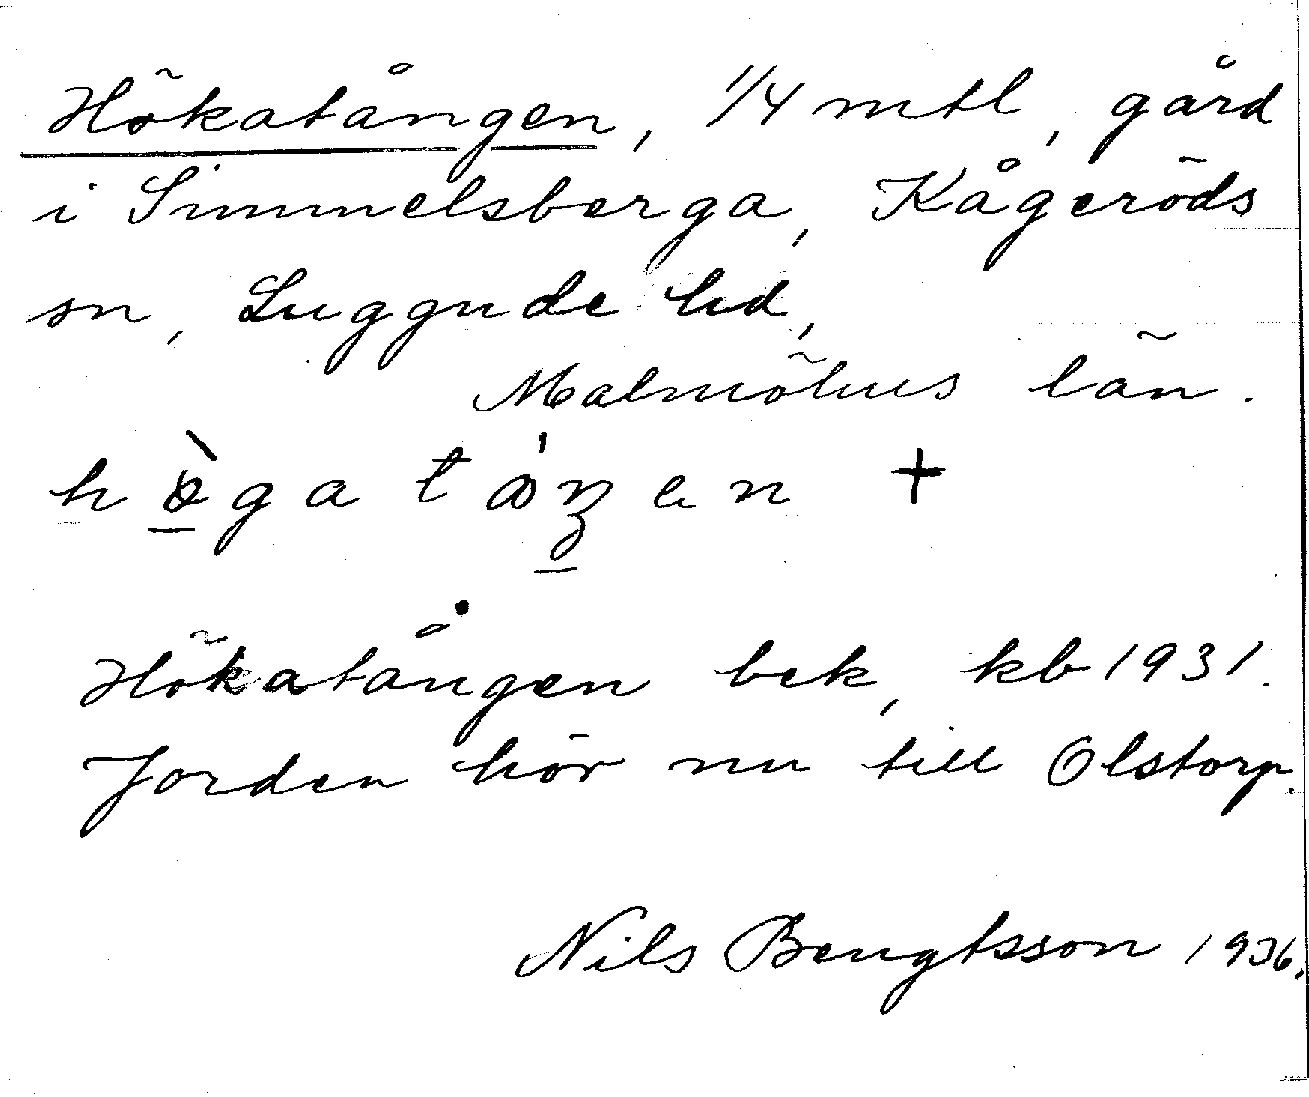 Hökatången, 1/4 mtl, gård
i Simmelsberga, Kågeröds
sn, Luggude hd,
Malmöhus län.
hø̀ga táŋen +
Hökatången bek, kb 1931.
Jorden hör nu till Olstorp.
Nils Bengtsson 1936.